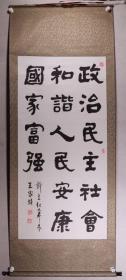 政治民主社會
和諧人民安康
國家富强